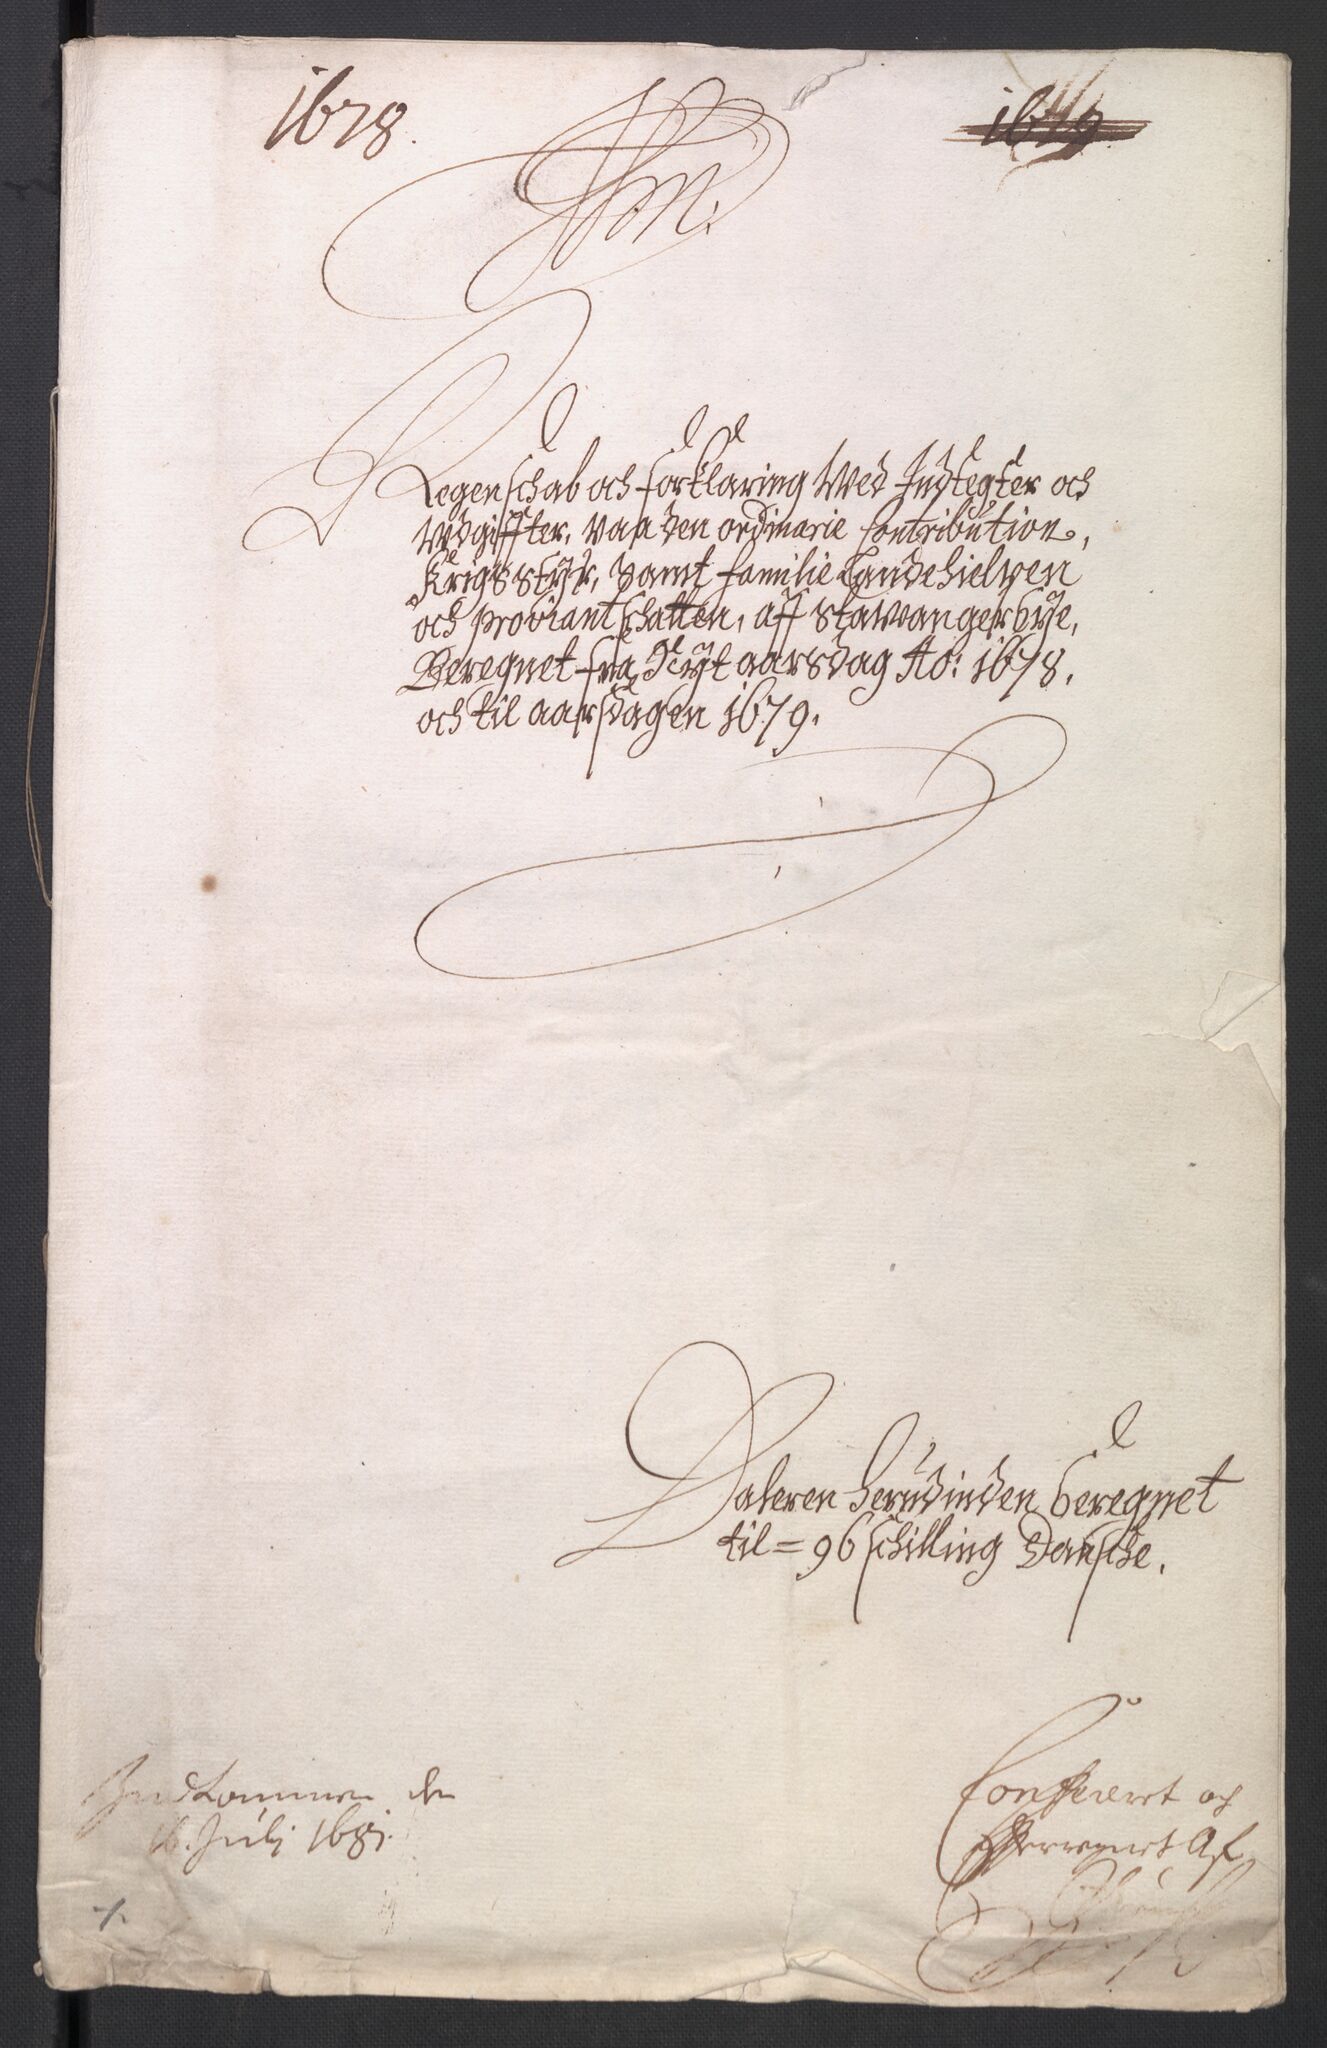 1678.
1679
Regenschab och forklaring Wed Indtegter och
Wdgiffter, paa den ordinarie Contribution,
Krigs styr, samt familie Landehielpen
och proviantschatten, aff Stawanger bye,
Beregnet fra Nyt aarsdag Ao: 1678.
och til aarsdagen 1679.
Daleren herudinden beregnet
til = 96 schilling Dansche.
Indkommen den
16. Julj 1681.
Confereret och
Efterregnet Af